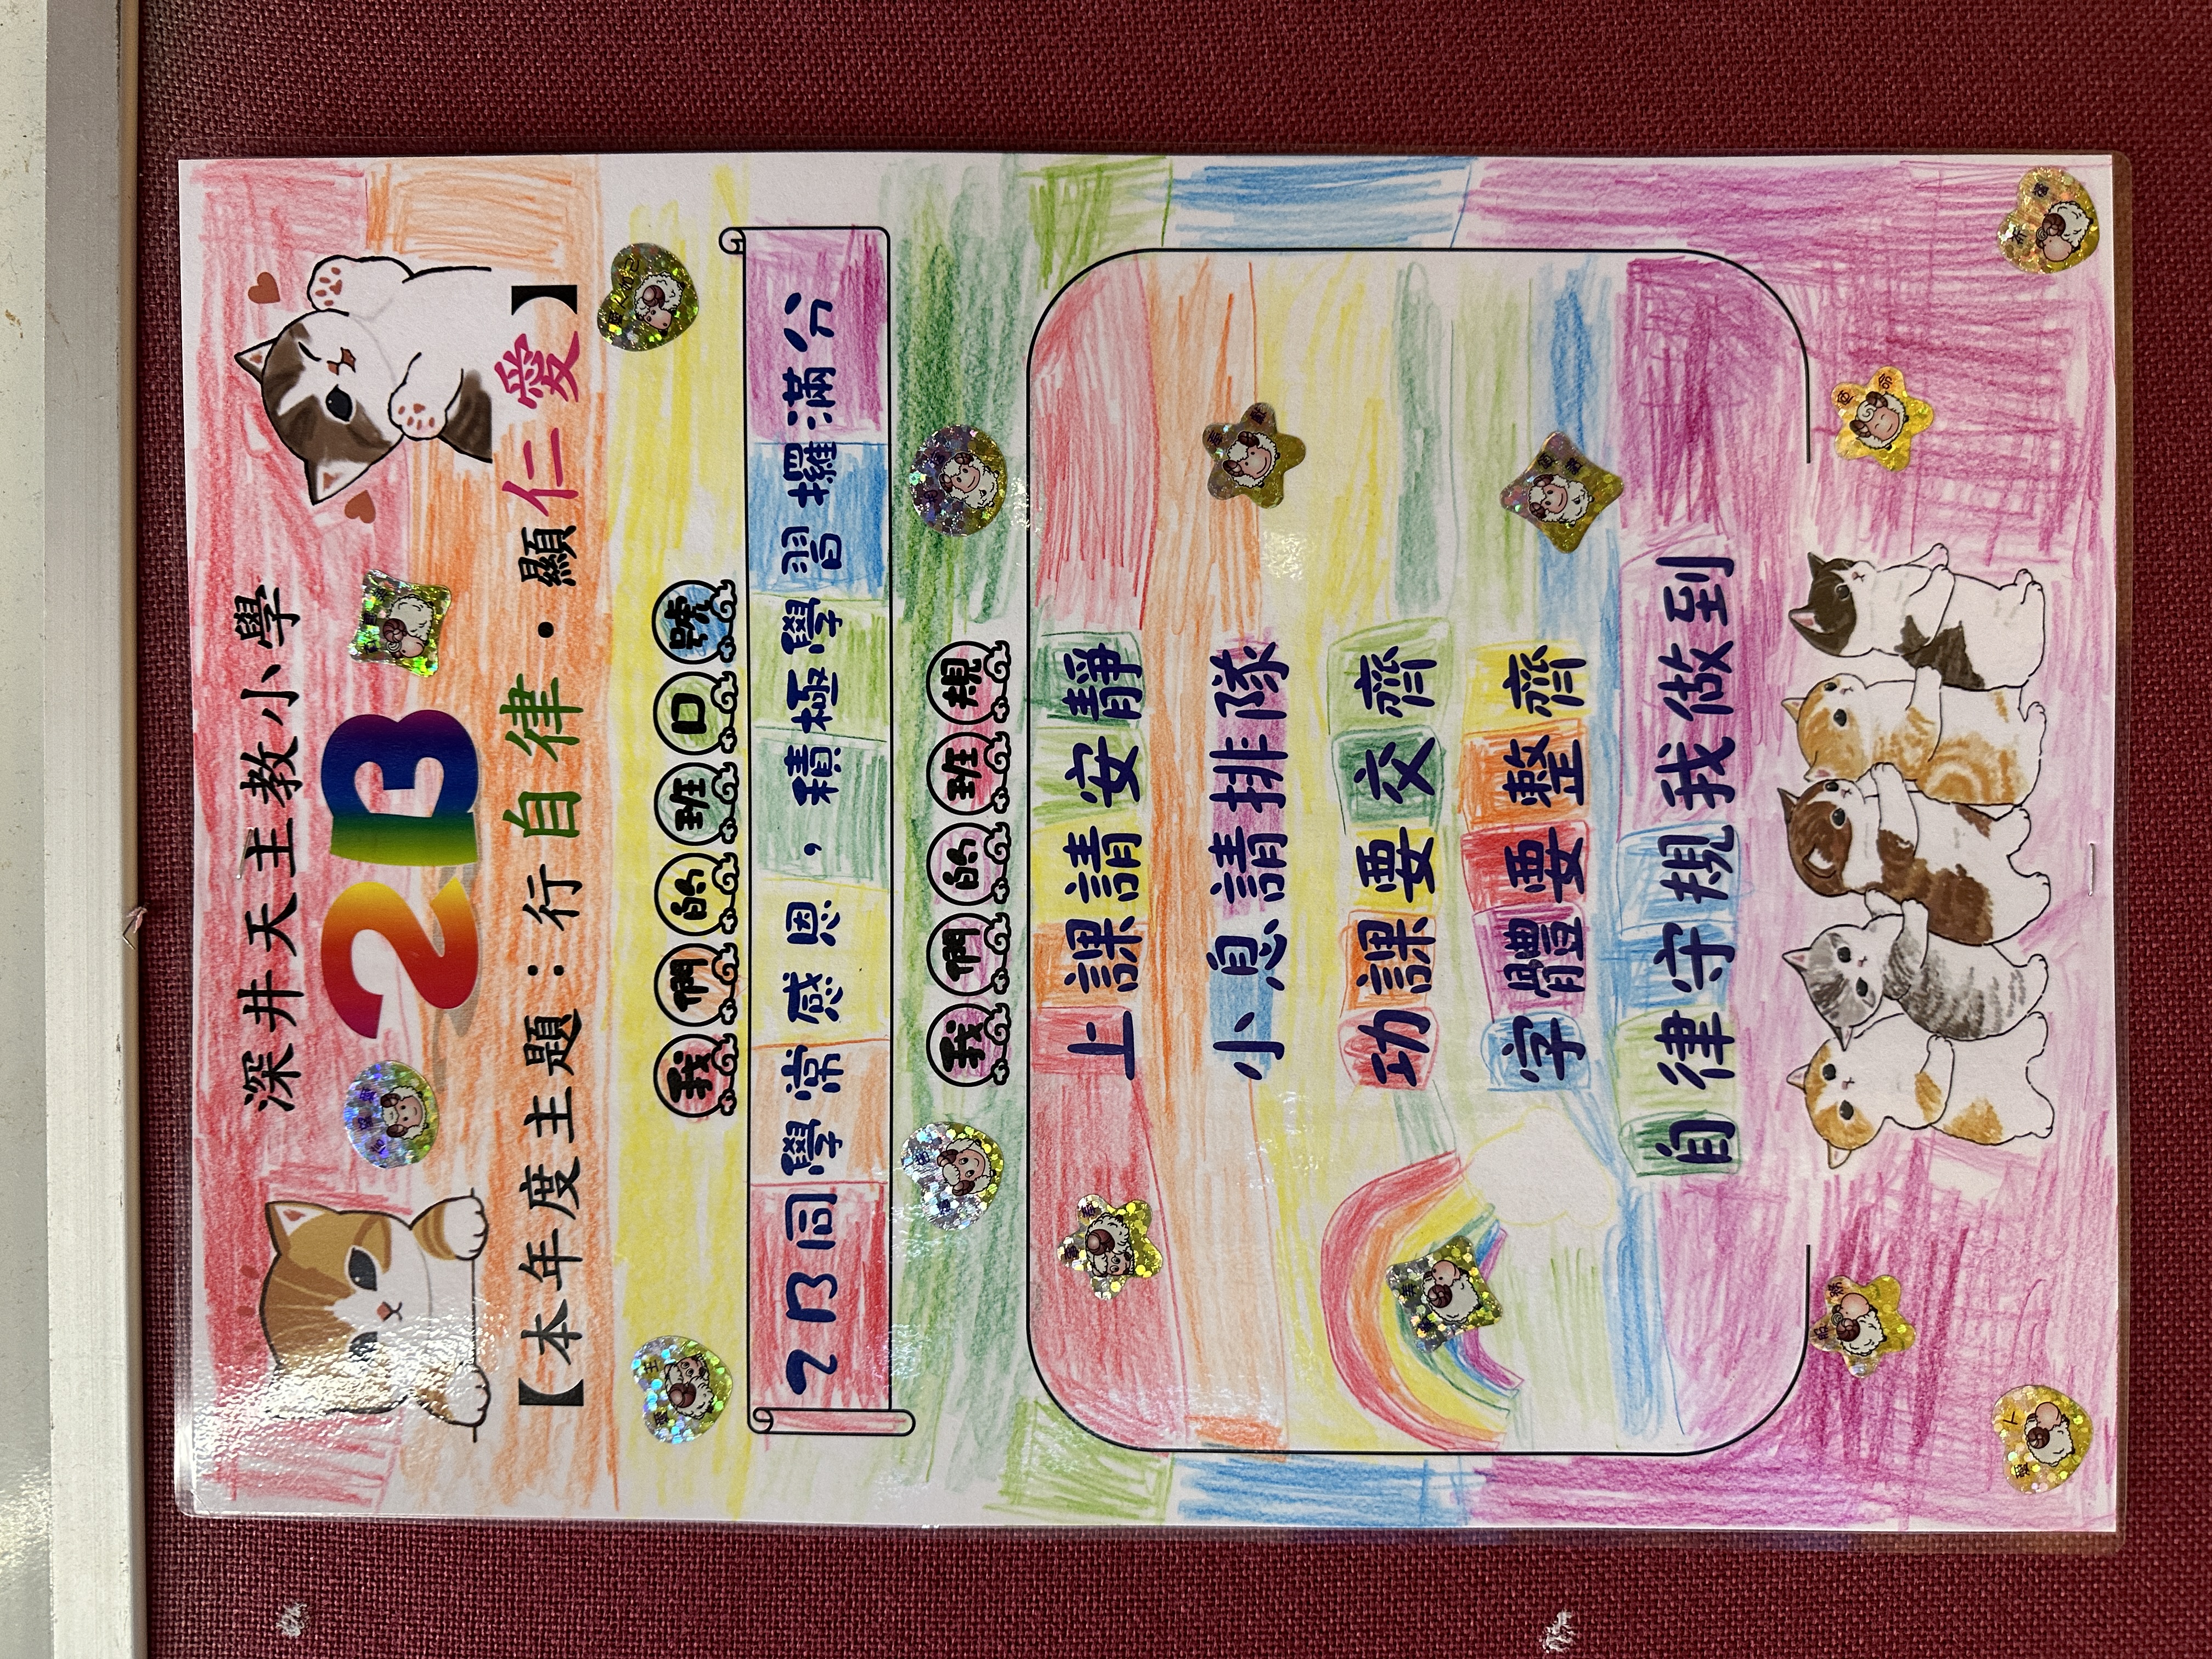 深井天主教小學
2B
【本年度主題：行自律·顯仁愛】
我們的班口號
2B同學常感恩，積極學習攞滿分
我們的班規
上課請安靜
小息請排隊
功課要交齊
字體要整齊
自律守規我做到